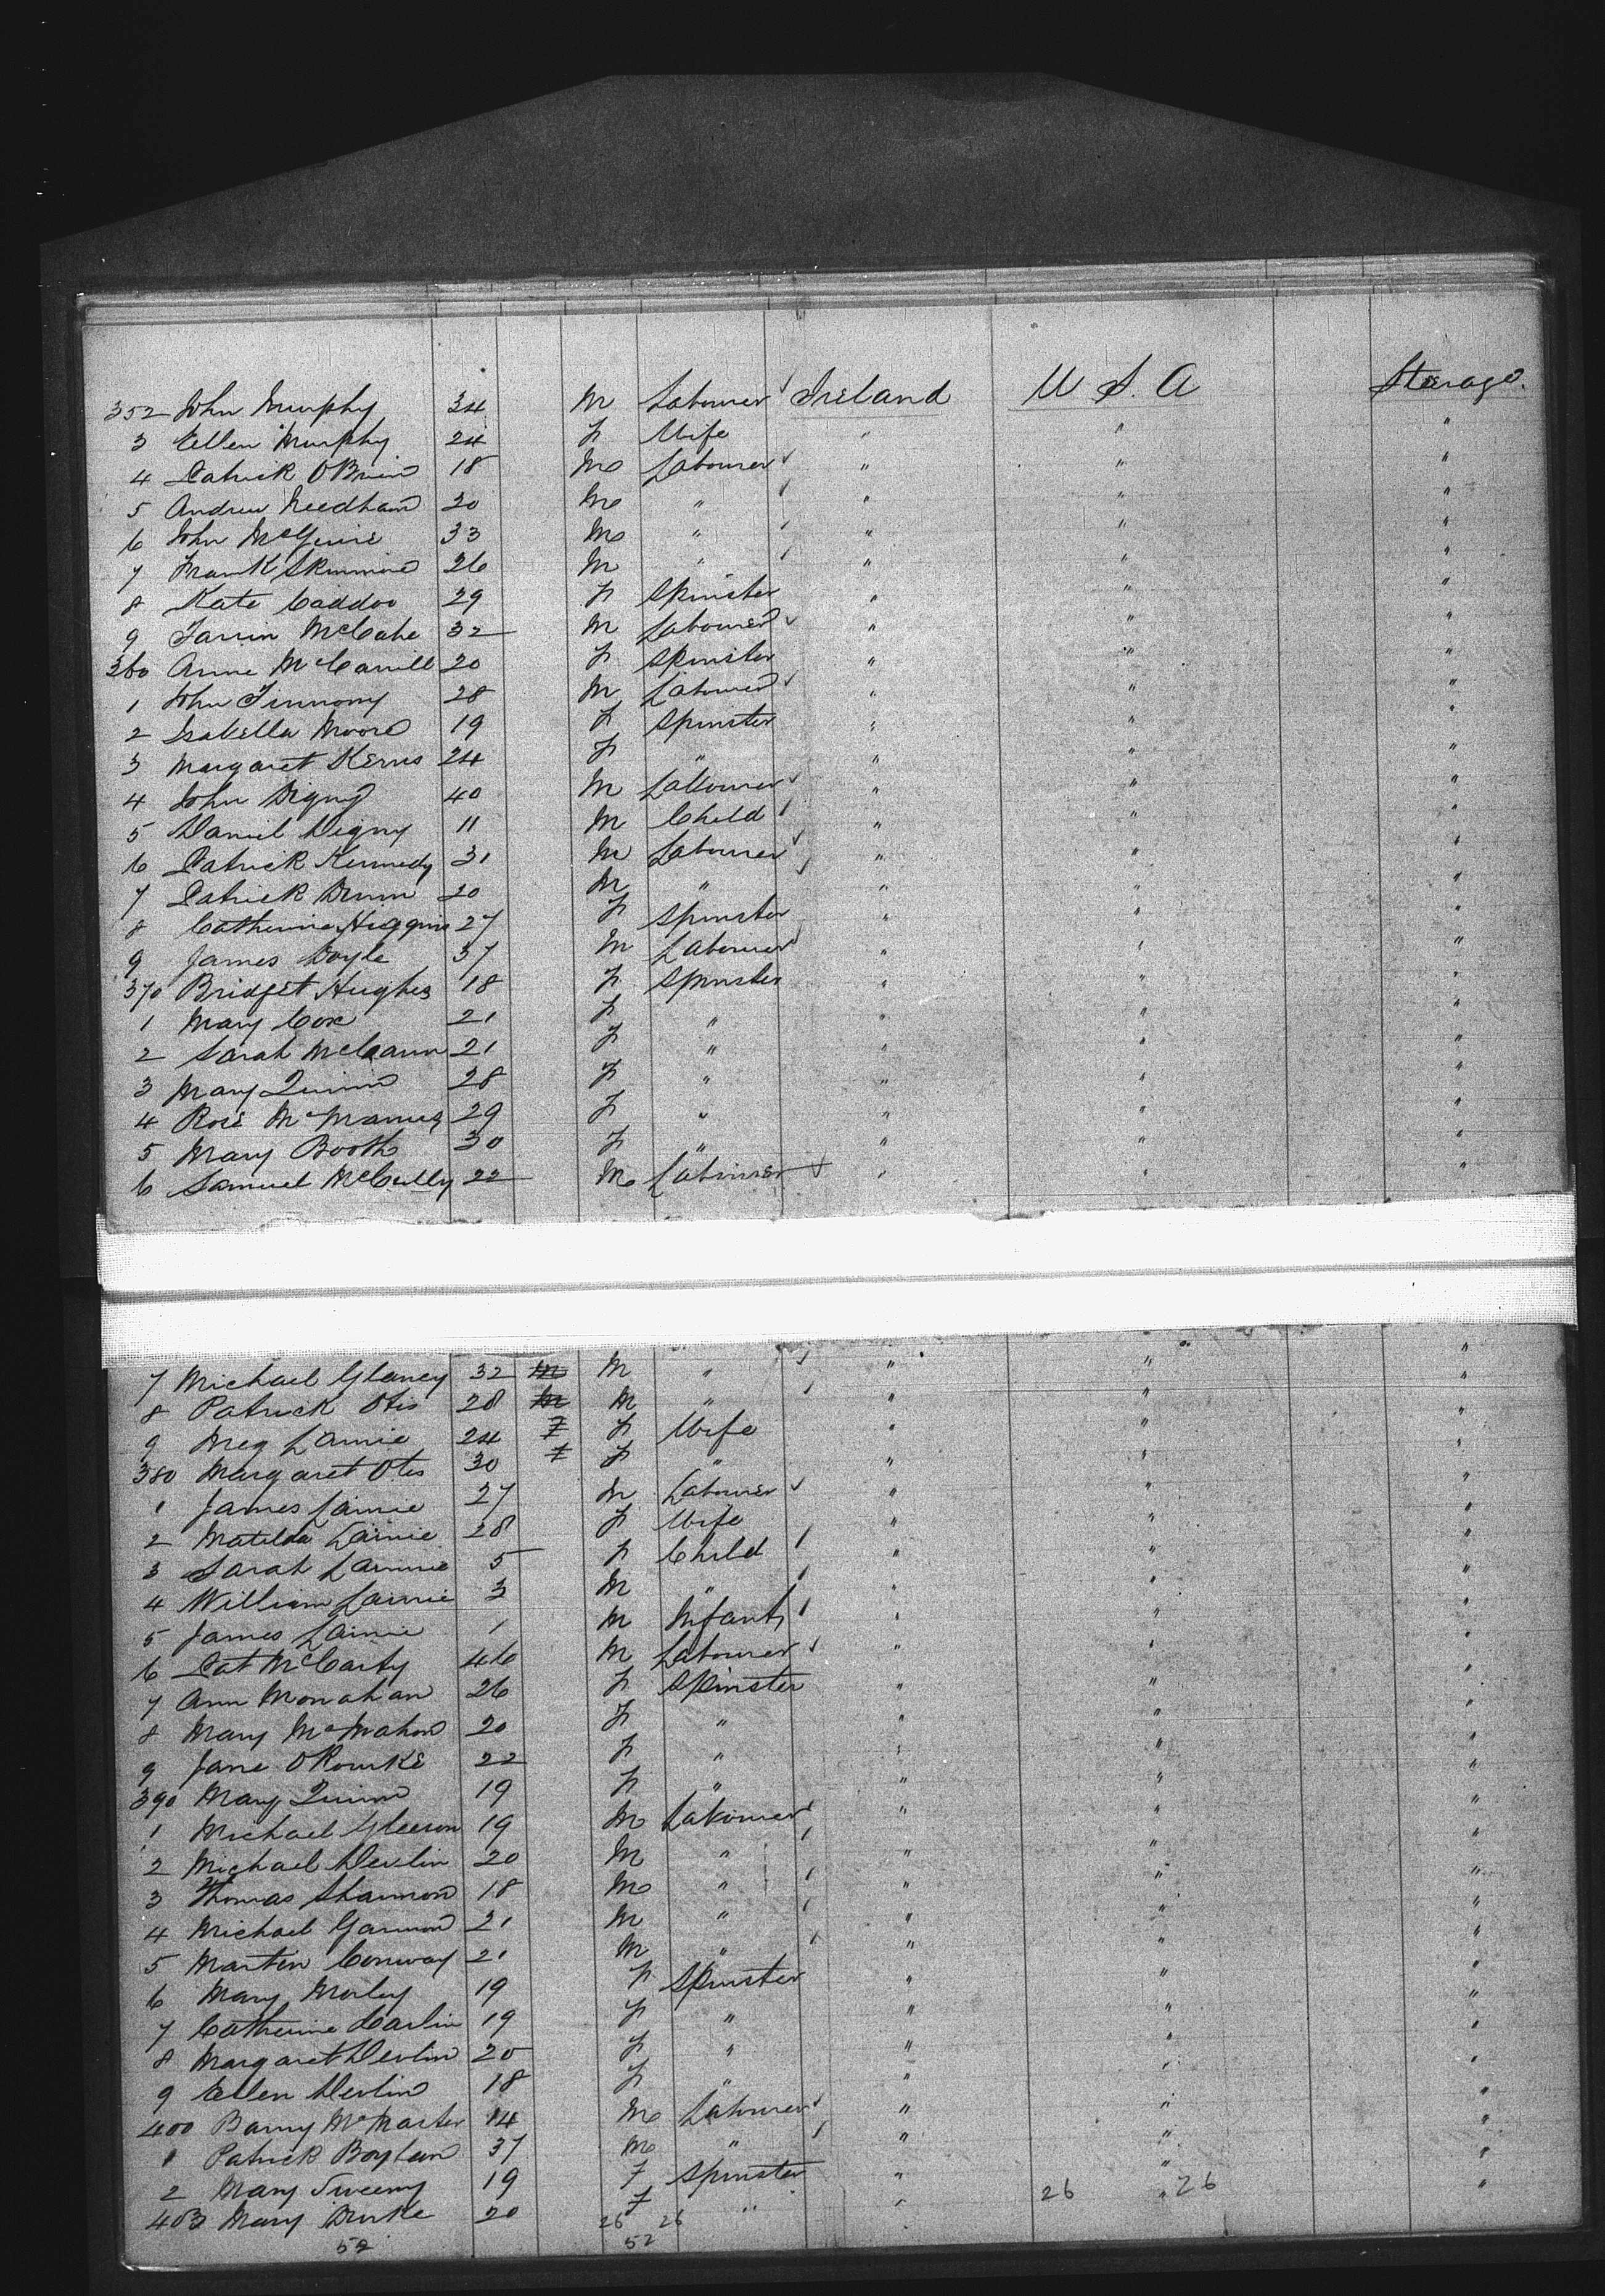 352 John Murphy 34 M Labourer Ireland U S. A Steerage.
3 Ellen Murphy 24 F Wife " " "
4 Patrick OBrien 18 M Labourer " " "
5 Andrew Needham 20 M " " " "
6 John McGuire 33 M " " " "
7 Frank Skinnine 26 M " " " "
8 Kate Caddoo 29 F Spinster " " "
9 McCabe 32 M Labourer " " "
360 Anne McCarrill 20 F Spinster " " "
1 John Finnony 28 M Labourer " " "
2 Isabella Moore 19 F Spinster " " "
3 Margaret Kerns 24 F " " " "
4 John Digny 40 M Labourer " " "
5 Daniel Digny 11 M Child " " "
6 Patrick Kennedy 31 M Labourer " " "
7 Patrick Dunn 20 M " " " "
8 Catherine Higgins 27 F Spinster " " "
9 James Doyle 37 M Labourer " " "
370 Bridget Hughes 18 F Spinster " " "
1 Mary Cox 21 F " " " "
2 Sarah McCann 21 F " " " "
3 Mary Quinn 28 F " " " "
4 Rose McManus 29 F " " " "
5 Mary Booth 30 F " " " "
6 Samuel McCully 22 M Labourer " " "
7 Michael Glancy 32 M M " " " "
8 Patrick Otis 28 M M " " " "
9 Meg Lamie 24 F F Wife " " "
380 Margaret Otis 30 F F " " " "
1 James Lamie 27 M Labourer " " "
2 Matilda Lamie 28 F Wife " " "
3 Sarah Lamie 5 F Child " " "
4 William Lamie 3 M " " " "
5 James Lamie 1 M Infant " " "
6 Pat McCarty 46 M Labourer " " "
7 Ann Monahan 26 F Spinster " " "
8 Mary McMahon 20 F " " " "
9 Jane ORourke 22 F " " " "
390 Mary Quinn 19 F " " " "
1 Michael Gleeson 19 M Labourer " " "
2 Michael Devlin 20 M " " " "
3 Thomas Shannon 18 M " " " "
4 Michael Gannon 21 M " " " "
5 Martin Conway 21 M " " " "
6 Mary Morley 19 F Spinster " " "
7 Catherine Carlin 19 F " " " "
8 Margaret Devlin 20 F " " " "
9 Ellen Devlin 18 F " " " "
400 Barny McMaster 14 M Labourer " " "
1 Patrick Boylan 37 M " " " "
2 Mary Sweeny 19 F Spinster " " "
403 Mary Burke 20 F " " 26 " 26 "
26 26
52 52